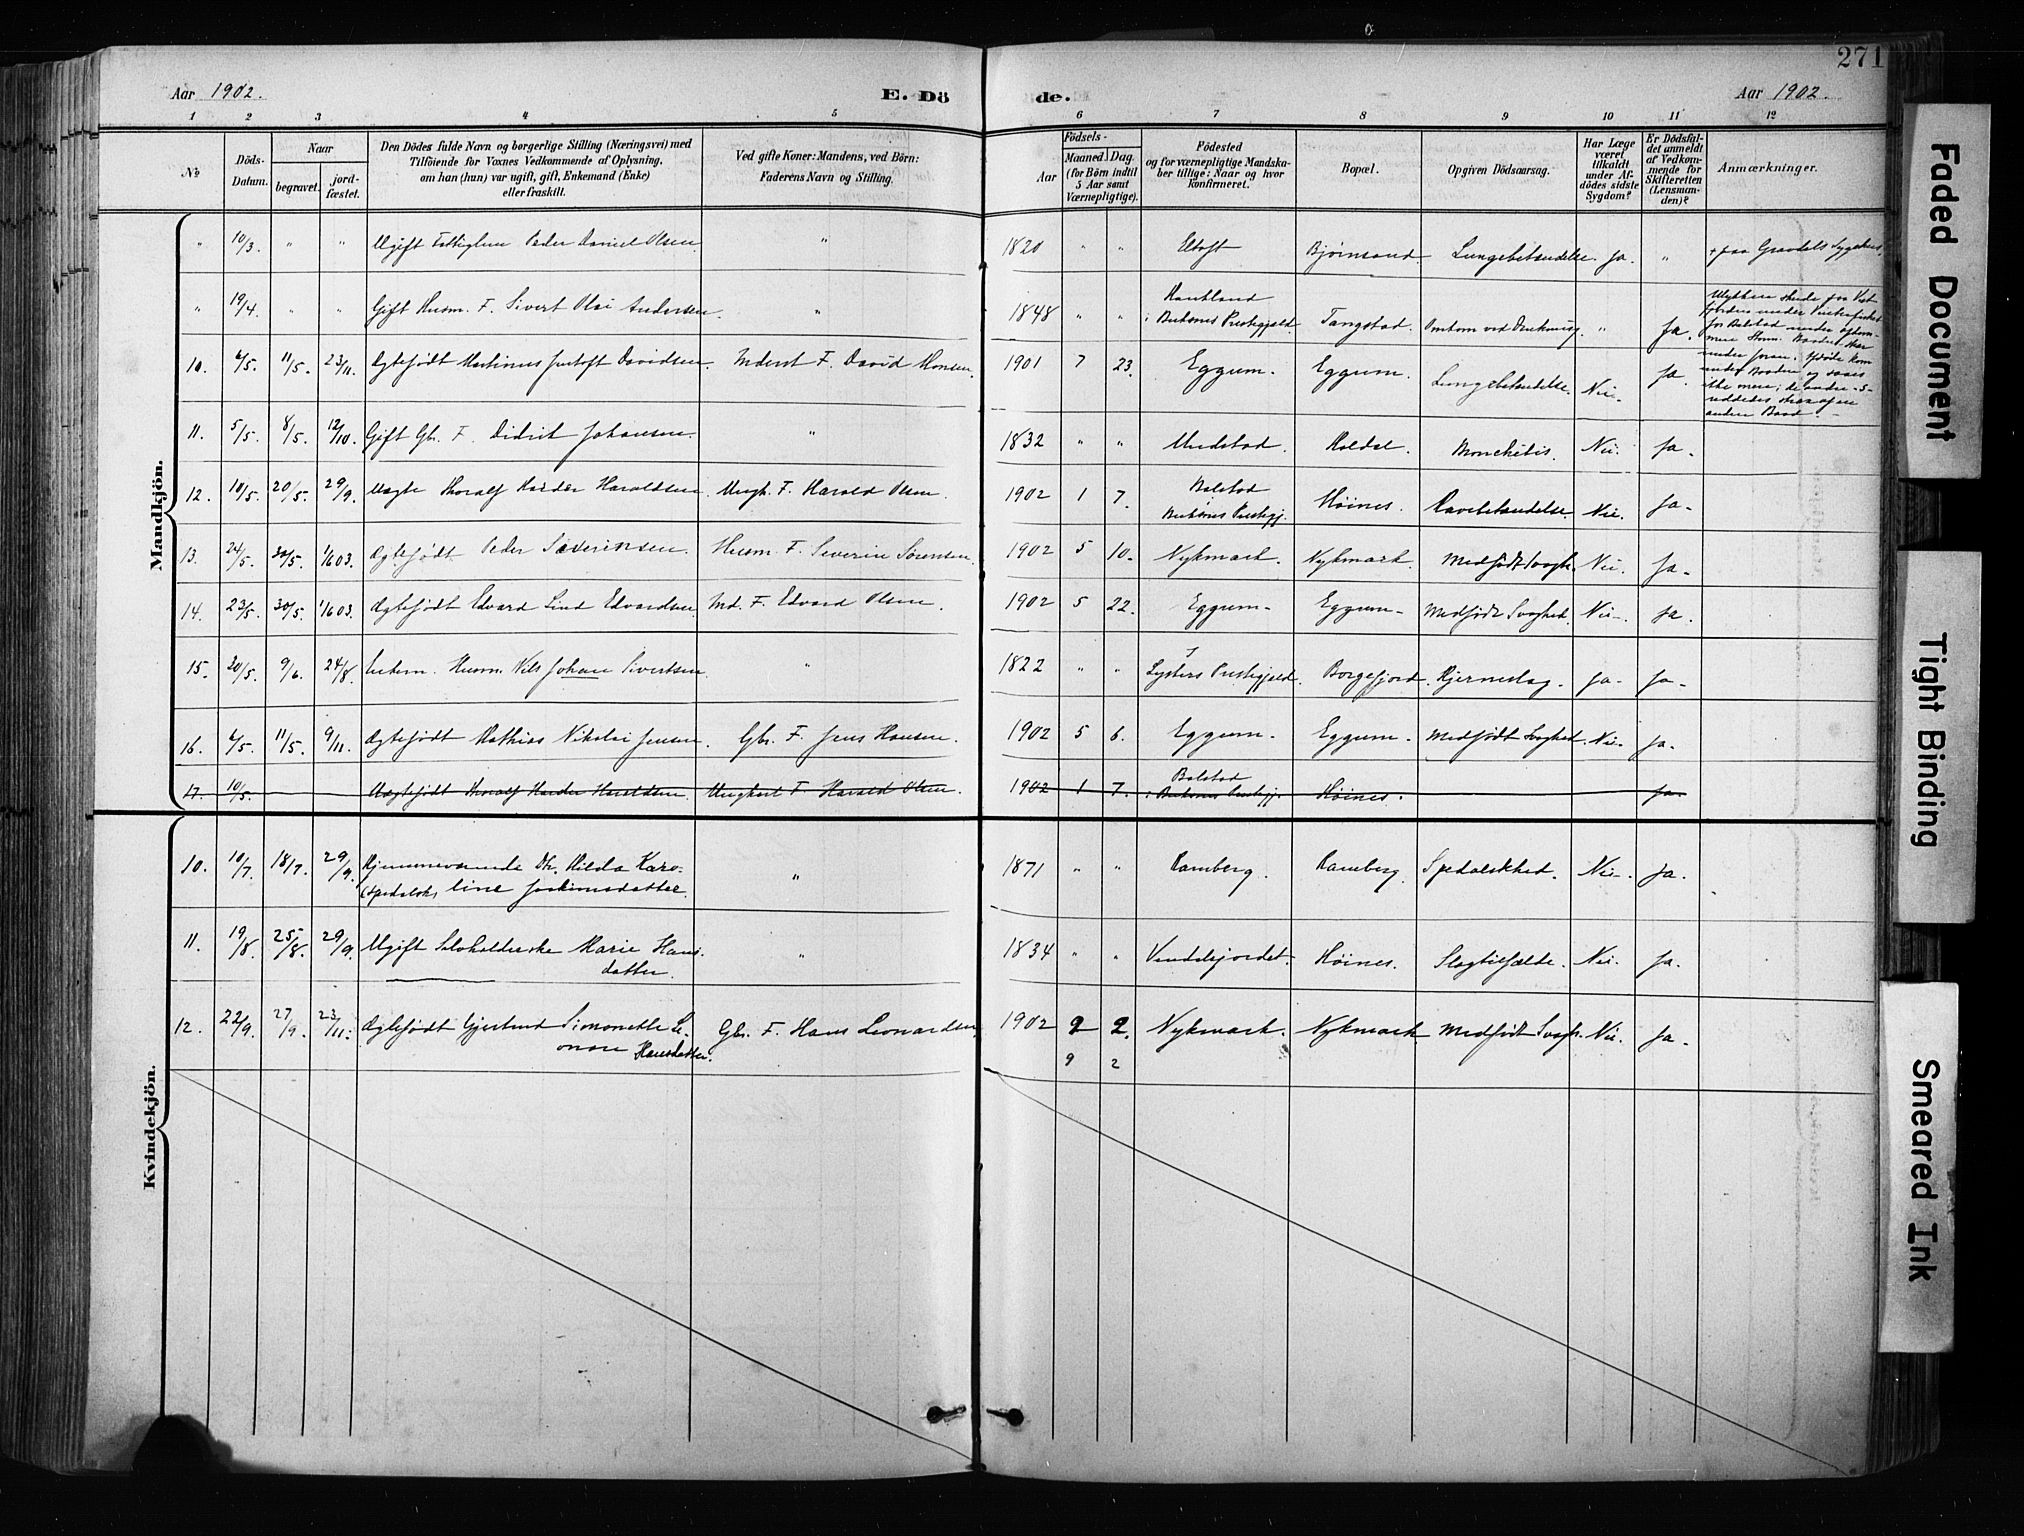 Aar 1902.
E. Dö
de.
Aar 1902.
271
1 2 3 4 5 6 7 8 9 10 11 12
No
Döds-
Datum.
Naar
begravet.
jord-
fæstet.
Den Dödes fulde Navn og borgerlige Stilling (Næringsvei) med
Tilföiende for Voxnes Vedkommende af Oplysning,
om han (hun) var ugift, gift, Enkemand (Enke)
eller fraskilt.
Ved gifte Koner: Mandens, ved Börn:
Faderens Navn og Stilling.
Födsels-
Aar
Maaned Dag
(for Börn indtil
5 Aar samt
Værnepligtige).
Födested
og for værnepligtige Mandska-
ber tillige: Naar og hvor
konfirmeret.
Bopæl.
Opgiven Dödsaarsag.
Har Læge
været
tilkaldt
under Af-
dödes sidste
Sygdom?
Er Dödsfal-
det anmeldt
af Vedkom-
mende for
Skifteretten
(Lensman-
den)?
Anmærkninger.
Mandkjön.
" 10/3. " " Ugift Fattiglem Peder Daniel Olsen " 1820 " " Eltoft Bjørnsand. Lungebetændelse. Ja. " + paa Gravdals Sygehus
" 19/4. " " Gift Husm. F. Sivert Olai Andersen. " 1848 " " i Buksnes Prestegjeld. Tangstad. Omkom ved Drukning. " Ja.
10. 6/5. 11/5. 23/11. Ægtefødt Martinus Justoft Davidsen. Inderst F. David Hansen. 1901 7 23. Eggum. Eggum. Lungebetændelse. Nei. Ja.
11. 5/5. 8/5. 12/10. Gift Gbr. F. Didrik Johansen. " 1832 " " Undstad. Holdal. Bronchitis. Nei. Ja.
12. 10/5. 20/5. 29/9. Uægte Thoralf Harder Haraldsen. Ungk. F. Harald Olsen. 1902 1 7. Balstad
i Buksnes Prestegj. Høines. Navebetændelse. Nei. Ja.
13. 24/5. 30/5. 1/6 03. Ægtefødt Peder Severinsen. Husm. F. Severin Sørensen 1902 5 10. Nykmark. Nykmark. Medfødt Svagh. Nei. Ja.
14. 23/5. 30/5. 1/6 03. Ægtefødt Edvard Lind Edvardsen Ind. F. Edvard Olsen. 1902 5 22. Eggum. Eggum. Medfødt Svaghed. Nei. Ja.
15. 30/5. 9/6. 24/8. Enkem. Husm. Nils Johan Sivertsen " 1822 " " i
Lysters Prestegjeld. Borgefjord. Hjerneslag. Ja. Ja.
16. 6/5. 11/5. 9/11. Ægtefødt Mathias Nikolai Jensen. Gbr. F. Jens Hansen. 1902 5 6. Eggum. Eggum. Medfødt Svaghed. Nei. Ja.
17. 10/5. Uægtefødt Thoralf Harder Haraldsen. Ungkarl F. Harald Olsen. 1902 1 7. Balstad
i Buksnes Prestegj. Høines. Ja.
Kvindekjön.
10. 10/7. 18/7. 29/9. Hjemmeværende Dtr. Hilda Karo-
(spedalsk) line Joakimsdatter " 1871 " " Ramberg. Ramberg. Spedalskhed. Nei. Ja.
11. 19/8. 25/8. 29/9. Ugift Selvholderske Marie Hans-
datter. " 1834 " " Vendalsjordet. Høines. Slagtilfælde. Nei. Ja.
12. 22/9. 27/9. 23/11. Ægtefødt Gjertrud Simonette Le-
onore Hansdatter. Gbr. F. Hans Leonardsen. 1902 9 2. Nykmark. Nykmark. Medfødt Svagh. Nei. Ja.
9 2
Faded Document
Tight Binding
Smeared Ink